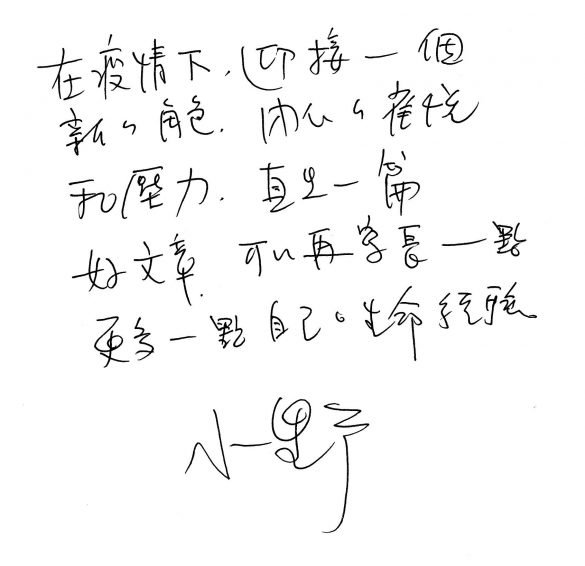 在疫情下，迎接一個
新的角色．內心的雀悅
和壓力．真是一篇
好文章．可以再寫長一點
更多一點自己的生命經驗
小野